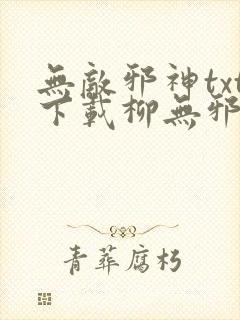 無敵邪神txt
下載柳無邪
青葬腐朽